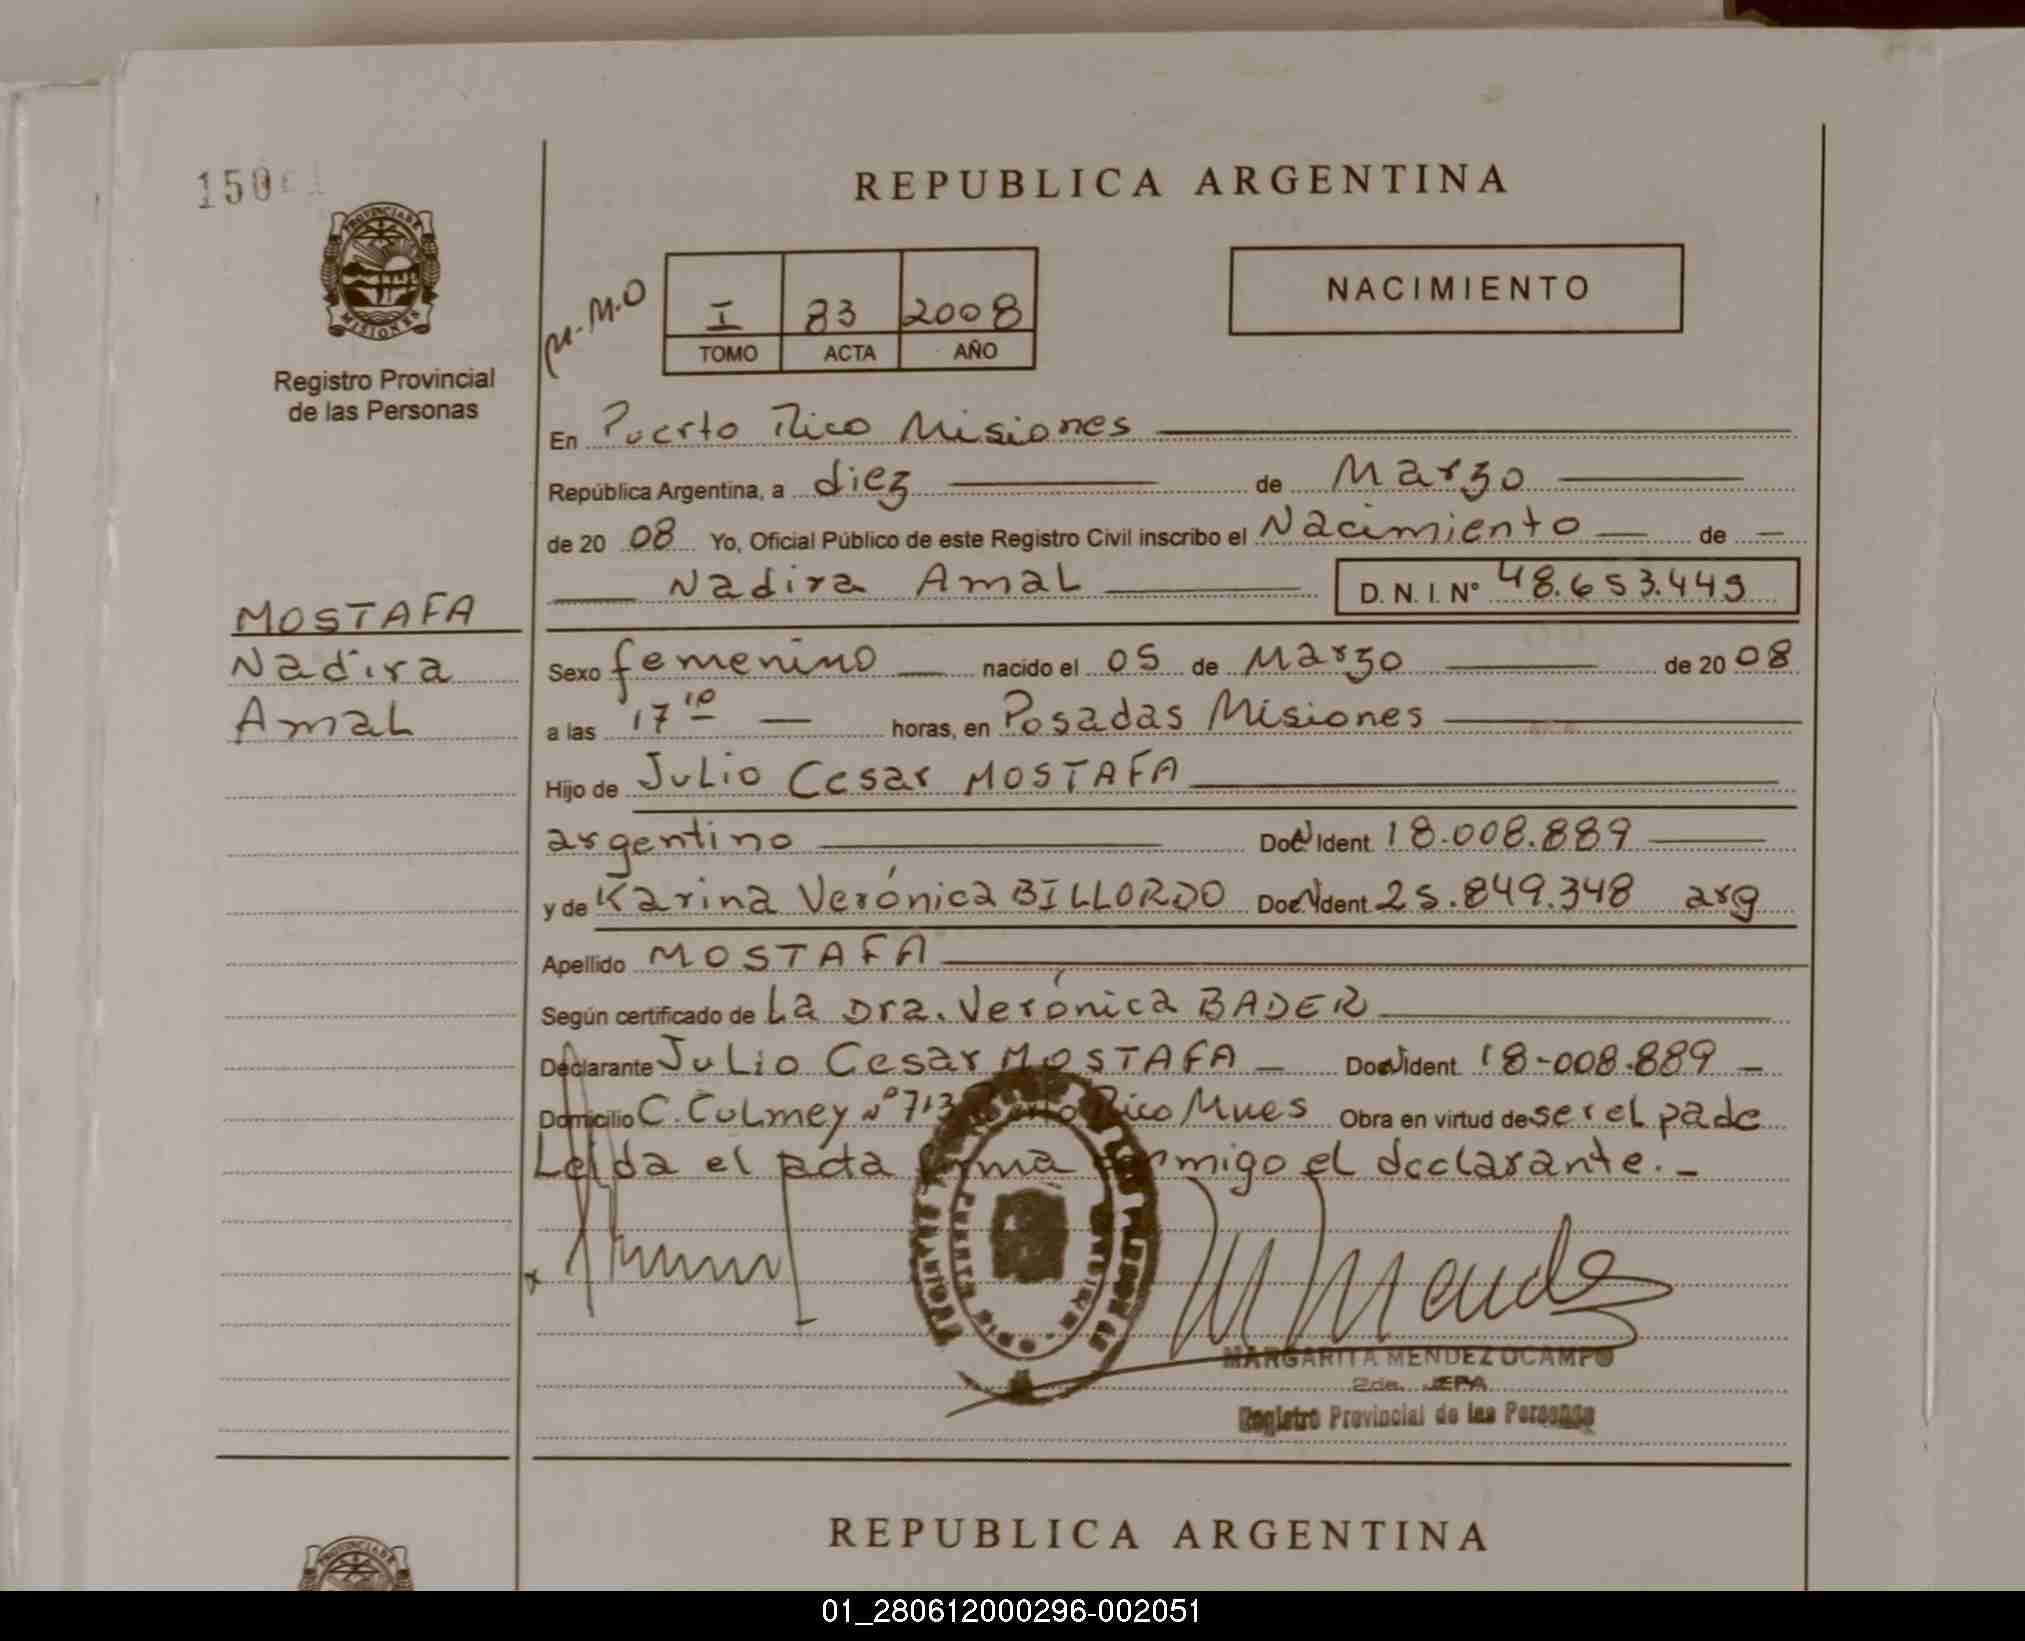 150
PROVINCIA DE
MISIONES
Registro Provincial
de las Personas
MOSTAFA
Nadira
Amal
REPUBLICA ARGENTINA
M.M.O
I 83 2008
TOMO ACTA AÑO
NACIMIENTO
En Puerto Rico Misiones
República Argentina, a diez de Marzo
de 20 08 Yo, Oficial Público de este Registro Civil inscribo el Nacimiento de
Nadira Amal D. N. I. Nº 48.653.449
Sexo femenino nacido el 05 de Marzo de 20 08
a las 17 10 horas, en Posadas Misiones
Hijo de Julio Cesar MOSTAFA
argentino Doc Ident. 18.008.889
y de Karina Verónica BILLORDO Doc Ident. 25.849.348 arg
Apellido MOSTAFA
Según certificado de La Dra. Verónica BADER
Declarante Julio Cesar MOSTAFA Doc Ident. 18-008.889
Domicilio C. Culmey Nº 713 Rico Mnes Obra en virtud de ser el padre
Leída el acta firma conmigo el declarante.
Mendez
MARGARITA MENDEZ OCAMPO
2da. JEFA
Registro Provincial de las Personas
REPUBLICA ARGENTINA
PROVINCIA DE
01_280612000296-002051